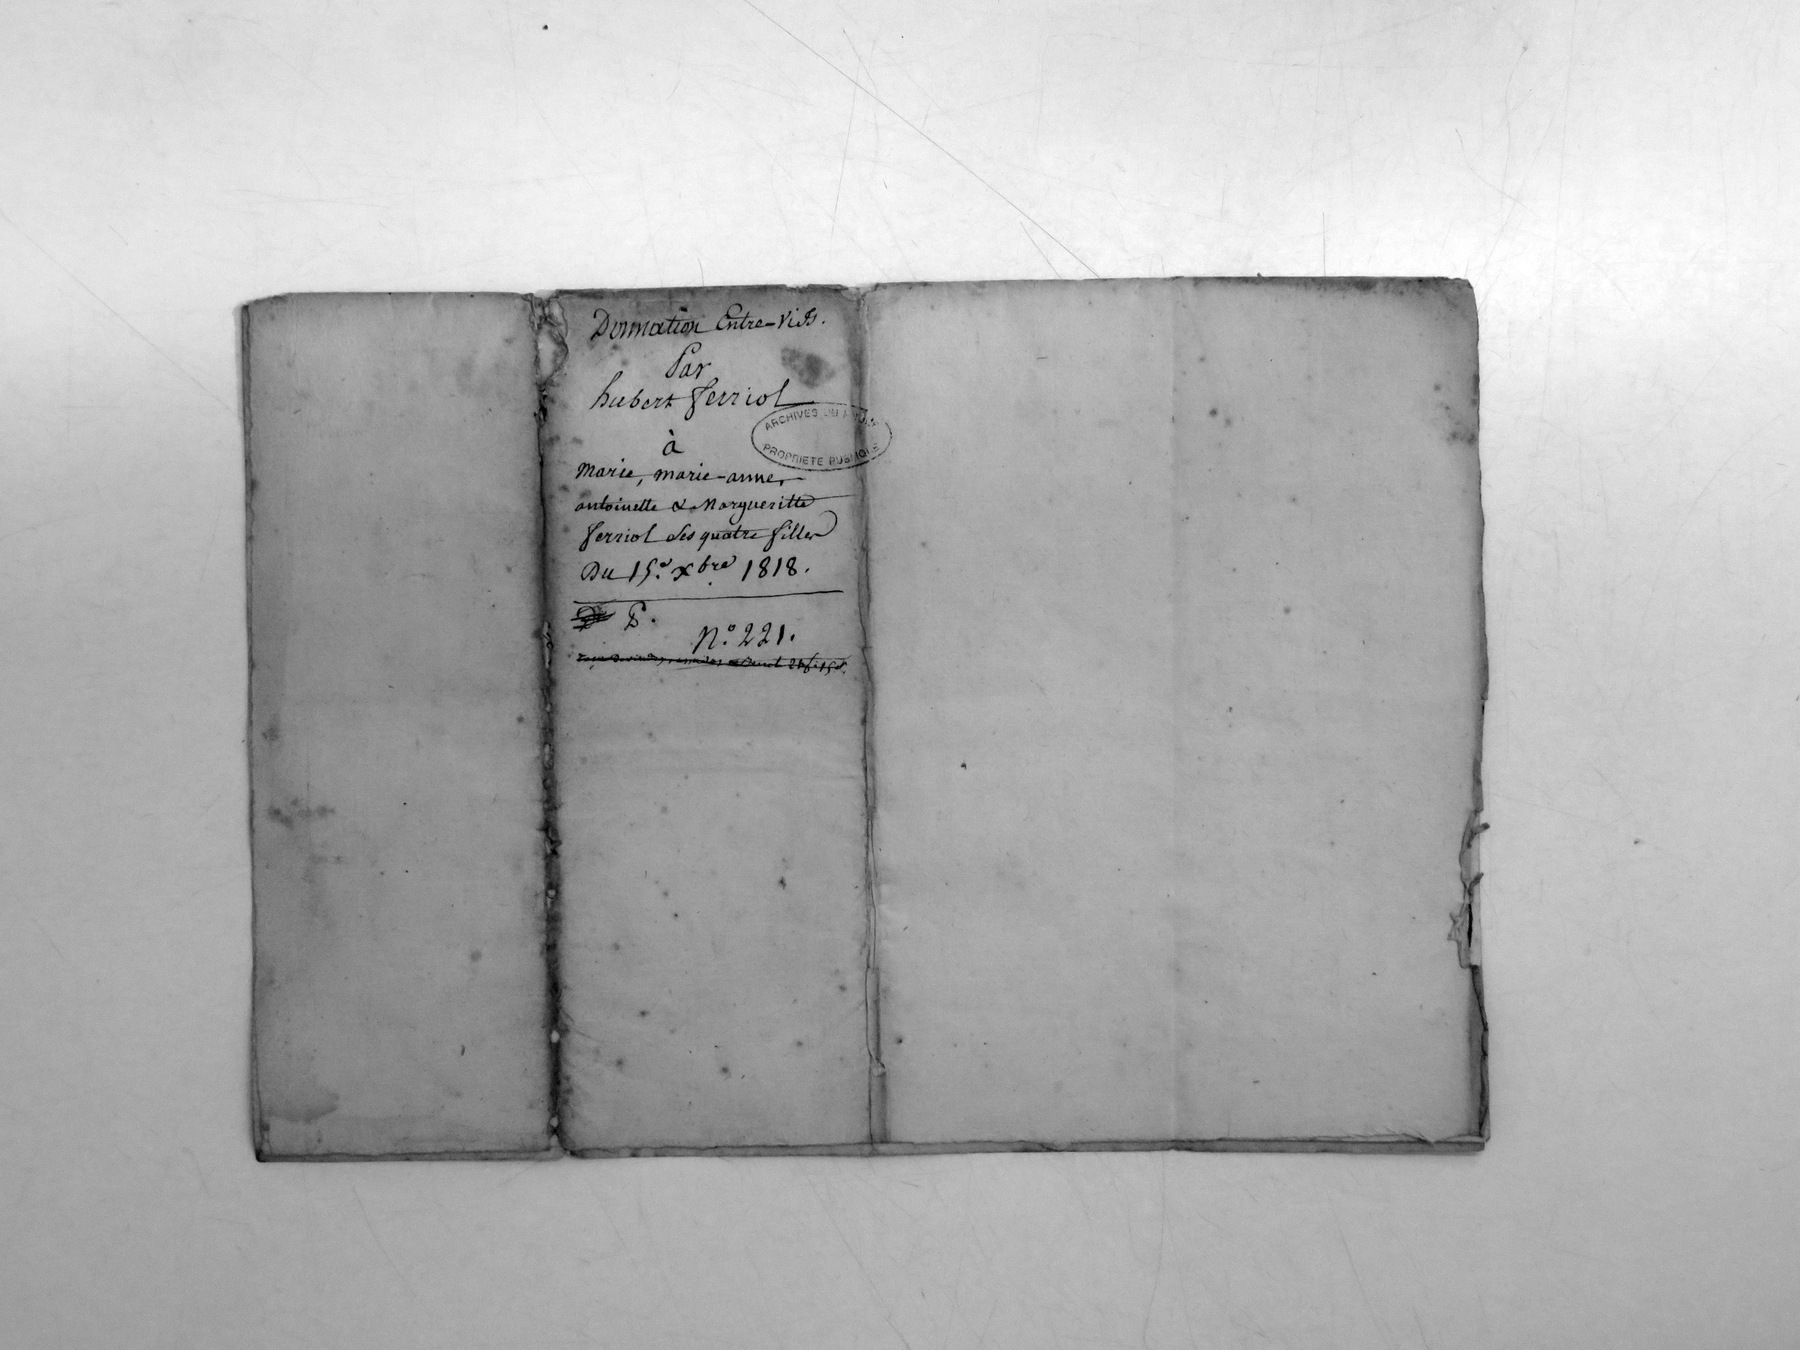 Donnation Entre-Vifs.
Par
hubert ferriol
à
Marie, marie-anne,
antoinette & Margueritte
ferriol ses quatre filles
Du 15.e xbre 1818.
N.o 221.
ARCHIVES DU
PROPRIETE PUBLIQUE